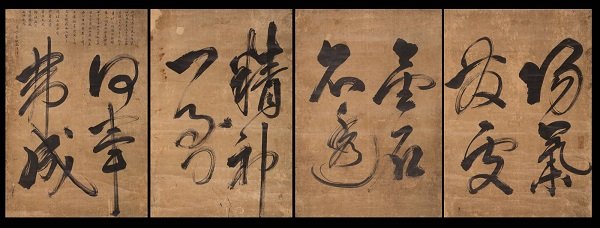 陽氣
發處
金石
亦透
精神
一到
何事
弗成